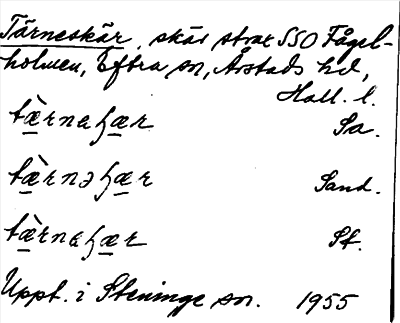 Tärneskär, skär strax SSO Fågel-
holmen, Eftra sn, Årstads hd,
Hall. l.
tæ̀rnaɧær Sa.
tæ̀rnəɧær Sand.
tæ̀rnaɧær St.
Uppt. i Steninge sn. 1955